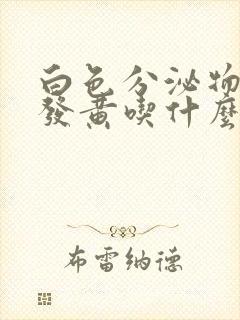 白色分泌物
發黃喫什麼
布雷納德